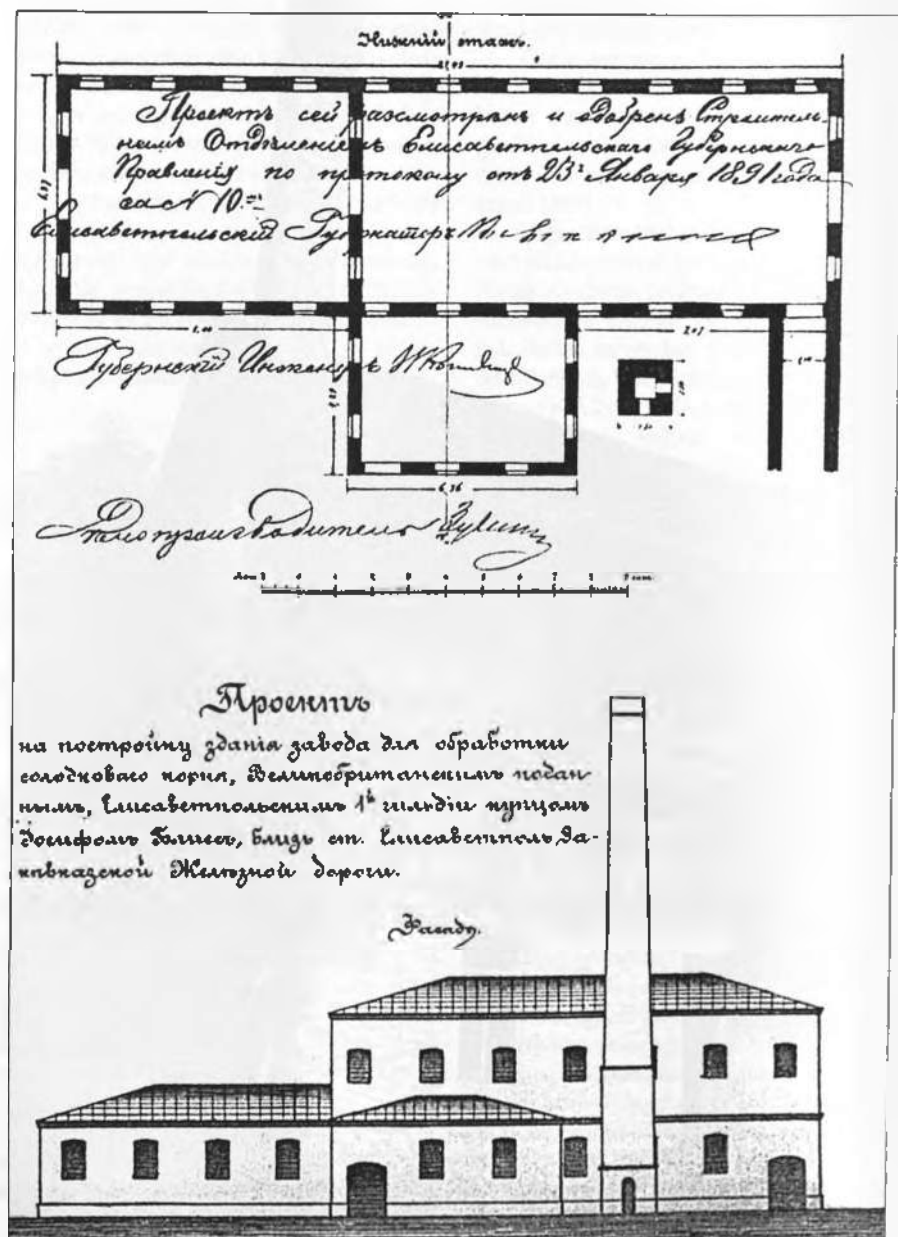 Нижній этажъ.
Проектъ сей разсмотрѣнъ и одобренъ Строитель-
нымъ Отдѣленіемъ Елисаветпольскаго Губернскаго
Правленія по протоколу отъ 23го Января 1891 года
за N 10.
Елисаветпольскій Губернаторъ
Губернскій Инженеръ
6,36
Дѣлопроизводитель
Проектъ
на постройку зданія завода для обработки
солодковаго корня, Великобританскимъ подан-
нымъ, Елисаветпольскимъ 1й гильдіи купцомъ
Іосифомъ Блиссъ, близь ст. Елисаветполь За-
кавказской Желѣзной дороги.
Фасадъ.